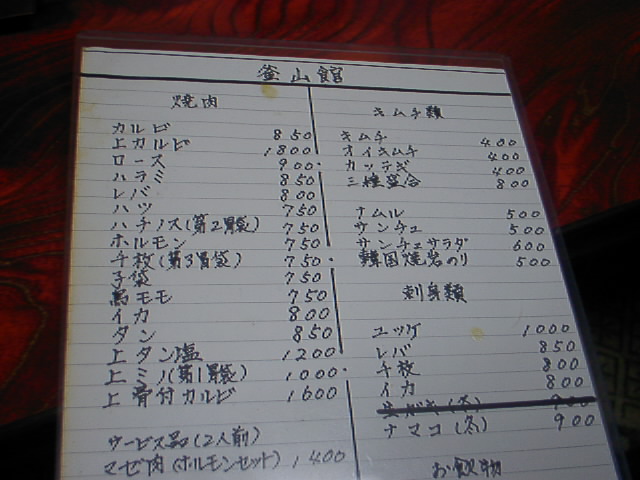 釜山館
焼肉
カルビ 850
上カルビ 1800
ロース 900
ハラミ 850
レバ 800
ハツ 750
ハチノス(第2胃袋) 750
ホルモン 750
千枚(第3胃袋) 750
子袋 750
鳥モモ 750
イカ 800
タン 850
上タン塩 1200
上ミノ(第1胃袋) 1000
上骨付カルビ 1600
サービス品(2人前)
マゼ肉(ホルモンセット) 1400
キムチ類
キムチ 400
オイキムチ 400
カッテギ 400
三種盛合 800
ナムル 500
サンチュ 500
サンチュサラダ 600
韓国焼岩のり 500
刺身類
ユッケ 1000
レバ 850
千枚 800
イカ 800
生ガキ(冬) 900
ナマコ(冬) 900
お飲物